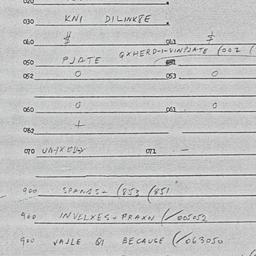 020
030 KNI DILINKSE
040 # 041 #
050 PJATE GXHERD-I-VINPJATE (002 (
052 0 053 0
060 0 061 0
062 +
070 071 -
900 SPANSS- (853 (851
900 INVLLXES+PRAXN (/005052
900 VAJLE QI BECAUSE (/063050